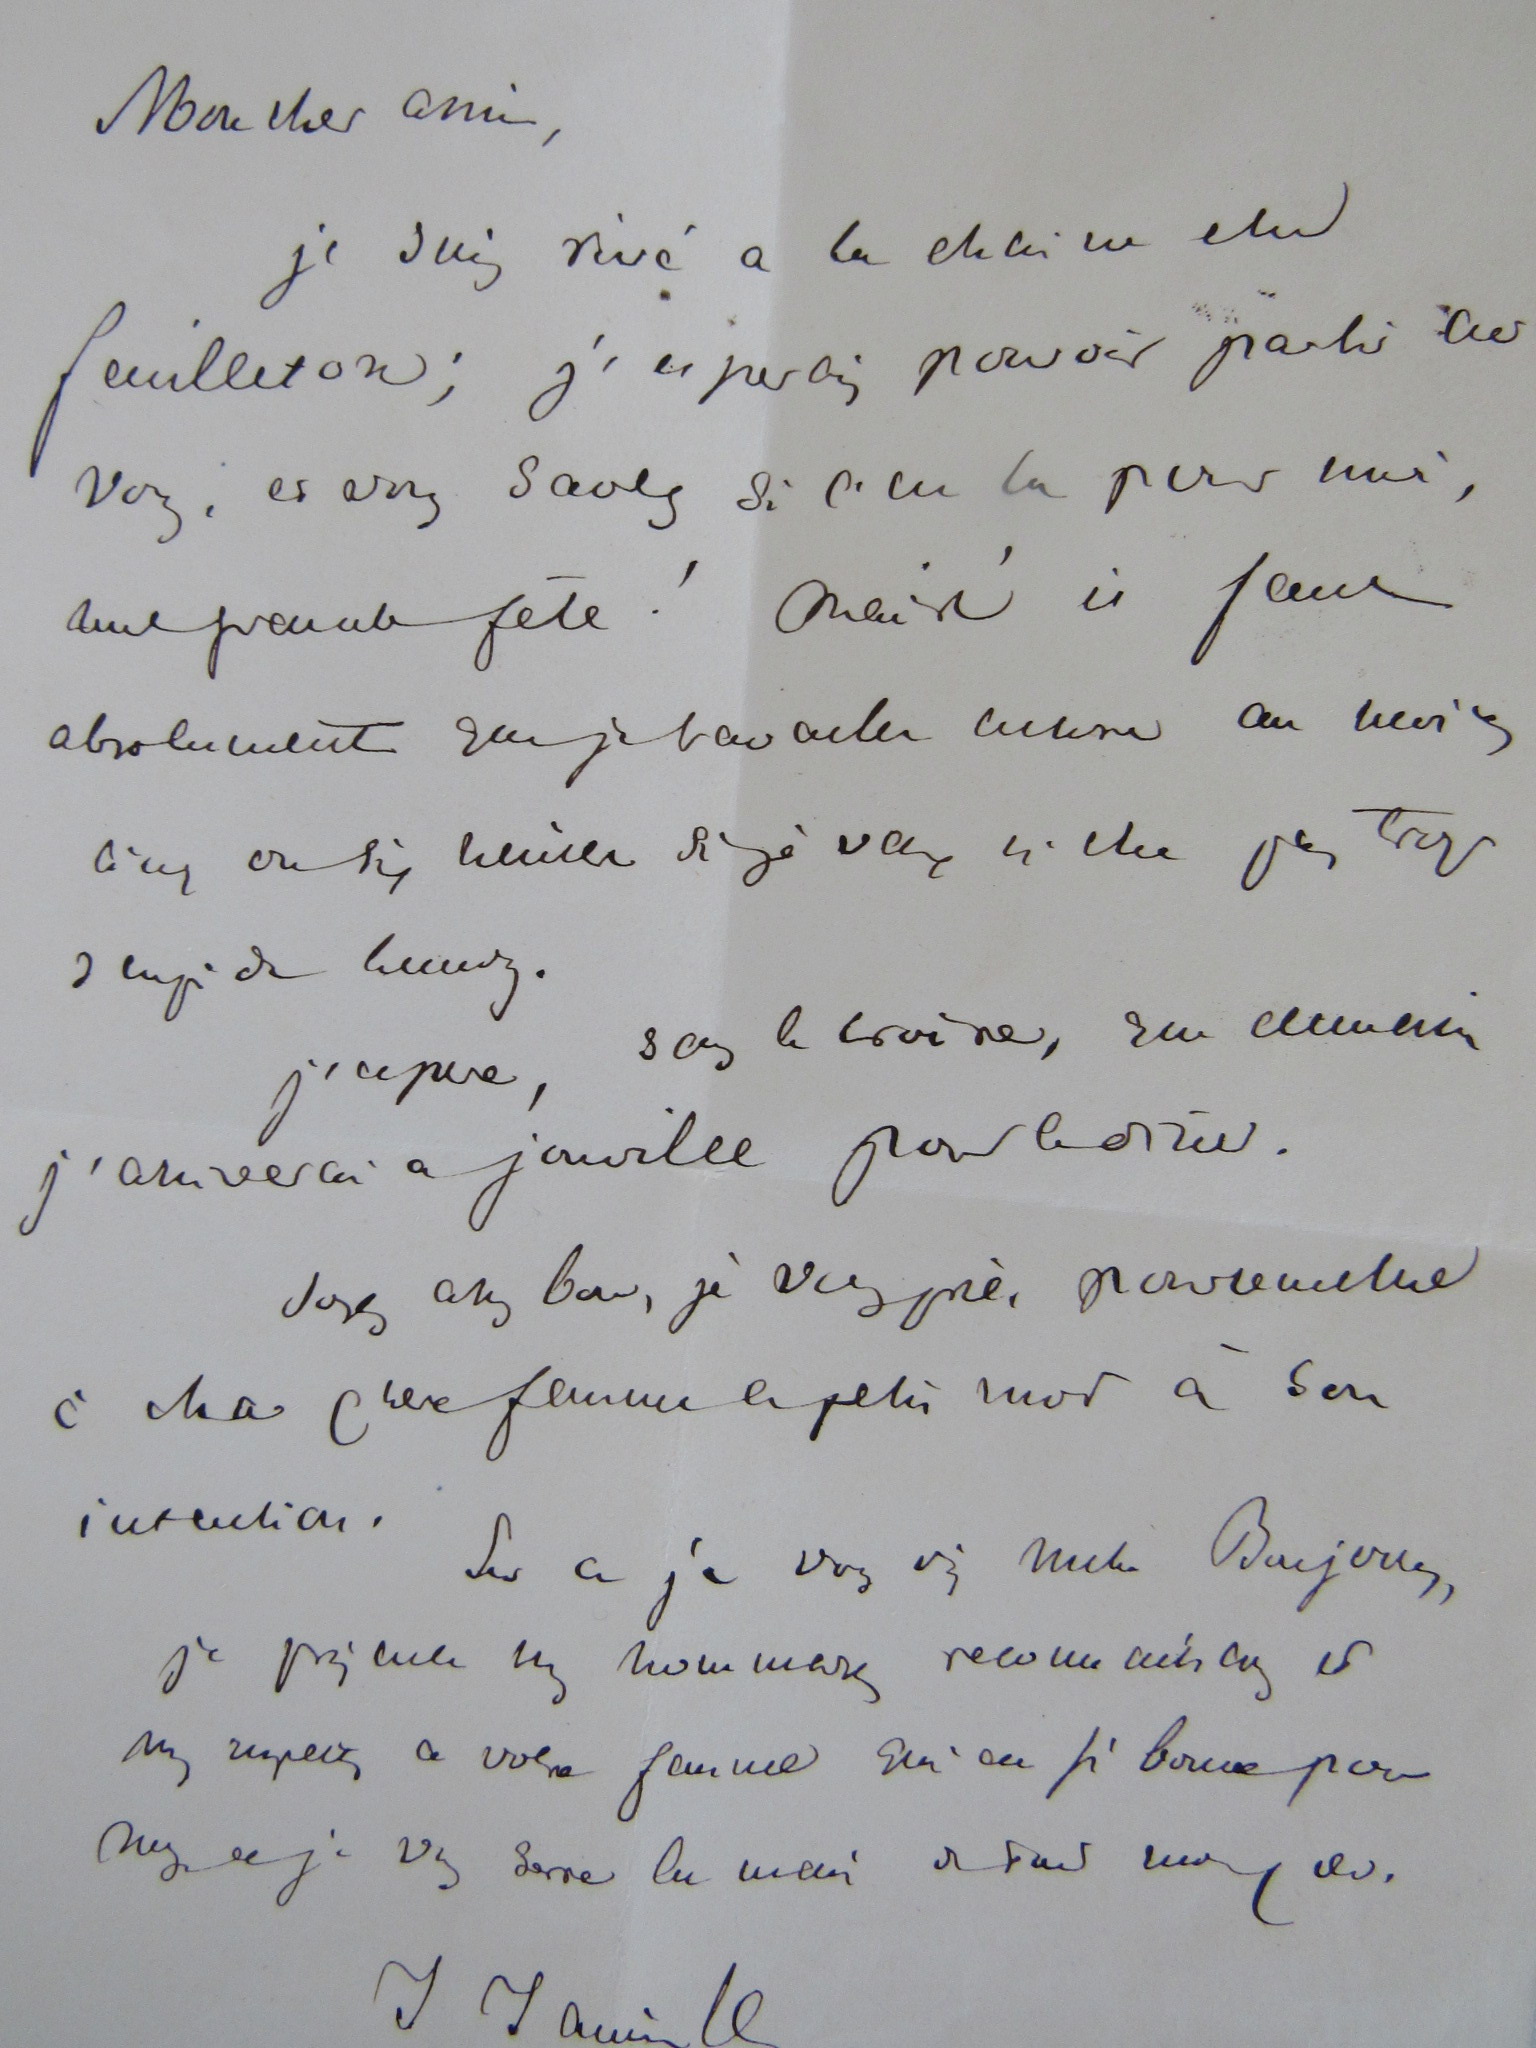 Mon cher ami,
je suis rivé a la chaine du
feuilleton; j'esperais pouvoir partir avec
vous, et vous savez si c'eut été pour moi,
une grande fête! mais il faut
absolument que je travaille encore au moins
cinq ou six heures si je veux n'être pas trop
stupide lundy.
j'espere, sans le croire, que demain
j'arriverai a joinville pour le diner.
Soyez assez bon, je vous prie, pour remettre
à ma chere femme le petit mot à son
intention.
Sur ce je vous dis mille Bonjours,
je présente mes hommages reconnaissans et
mes respects a votre femme qui est si bonne pour
nous et je vous serre la main de tout mon cœur.
J Janin